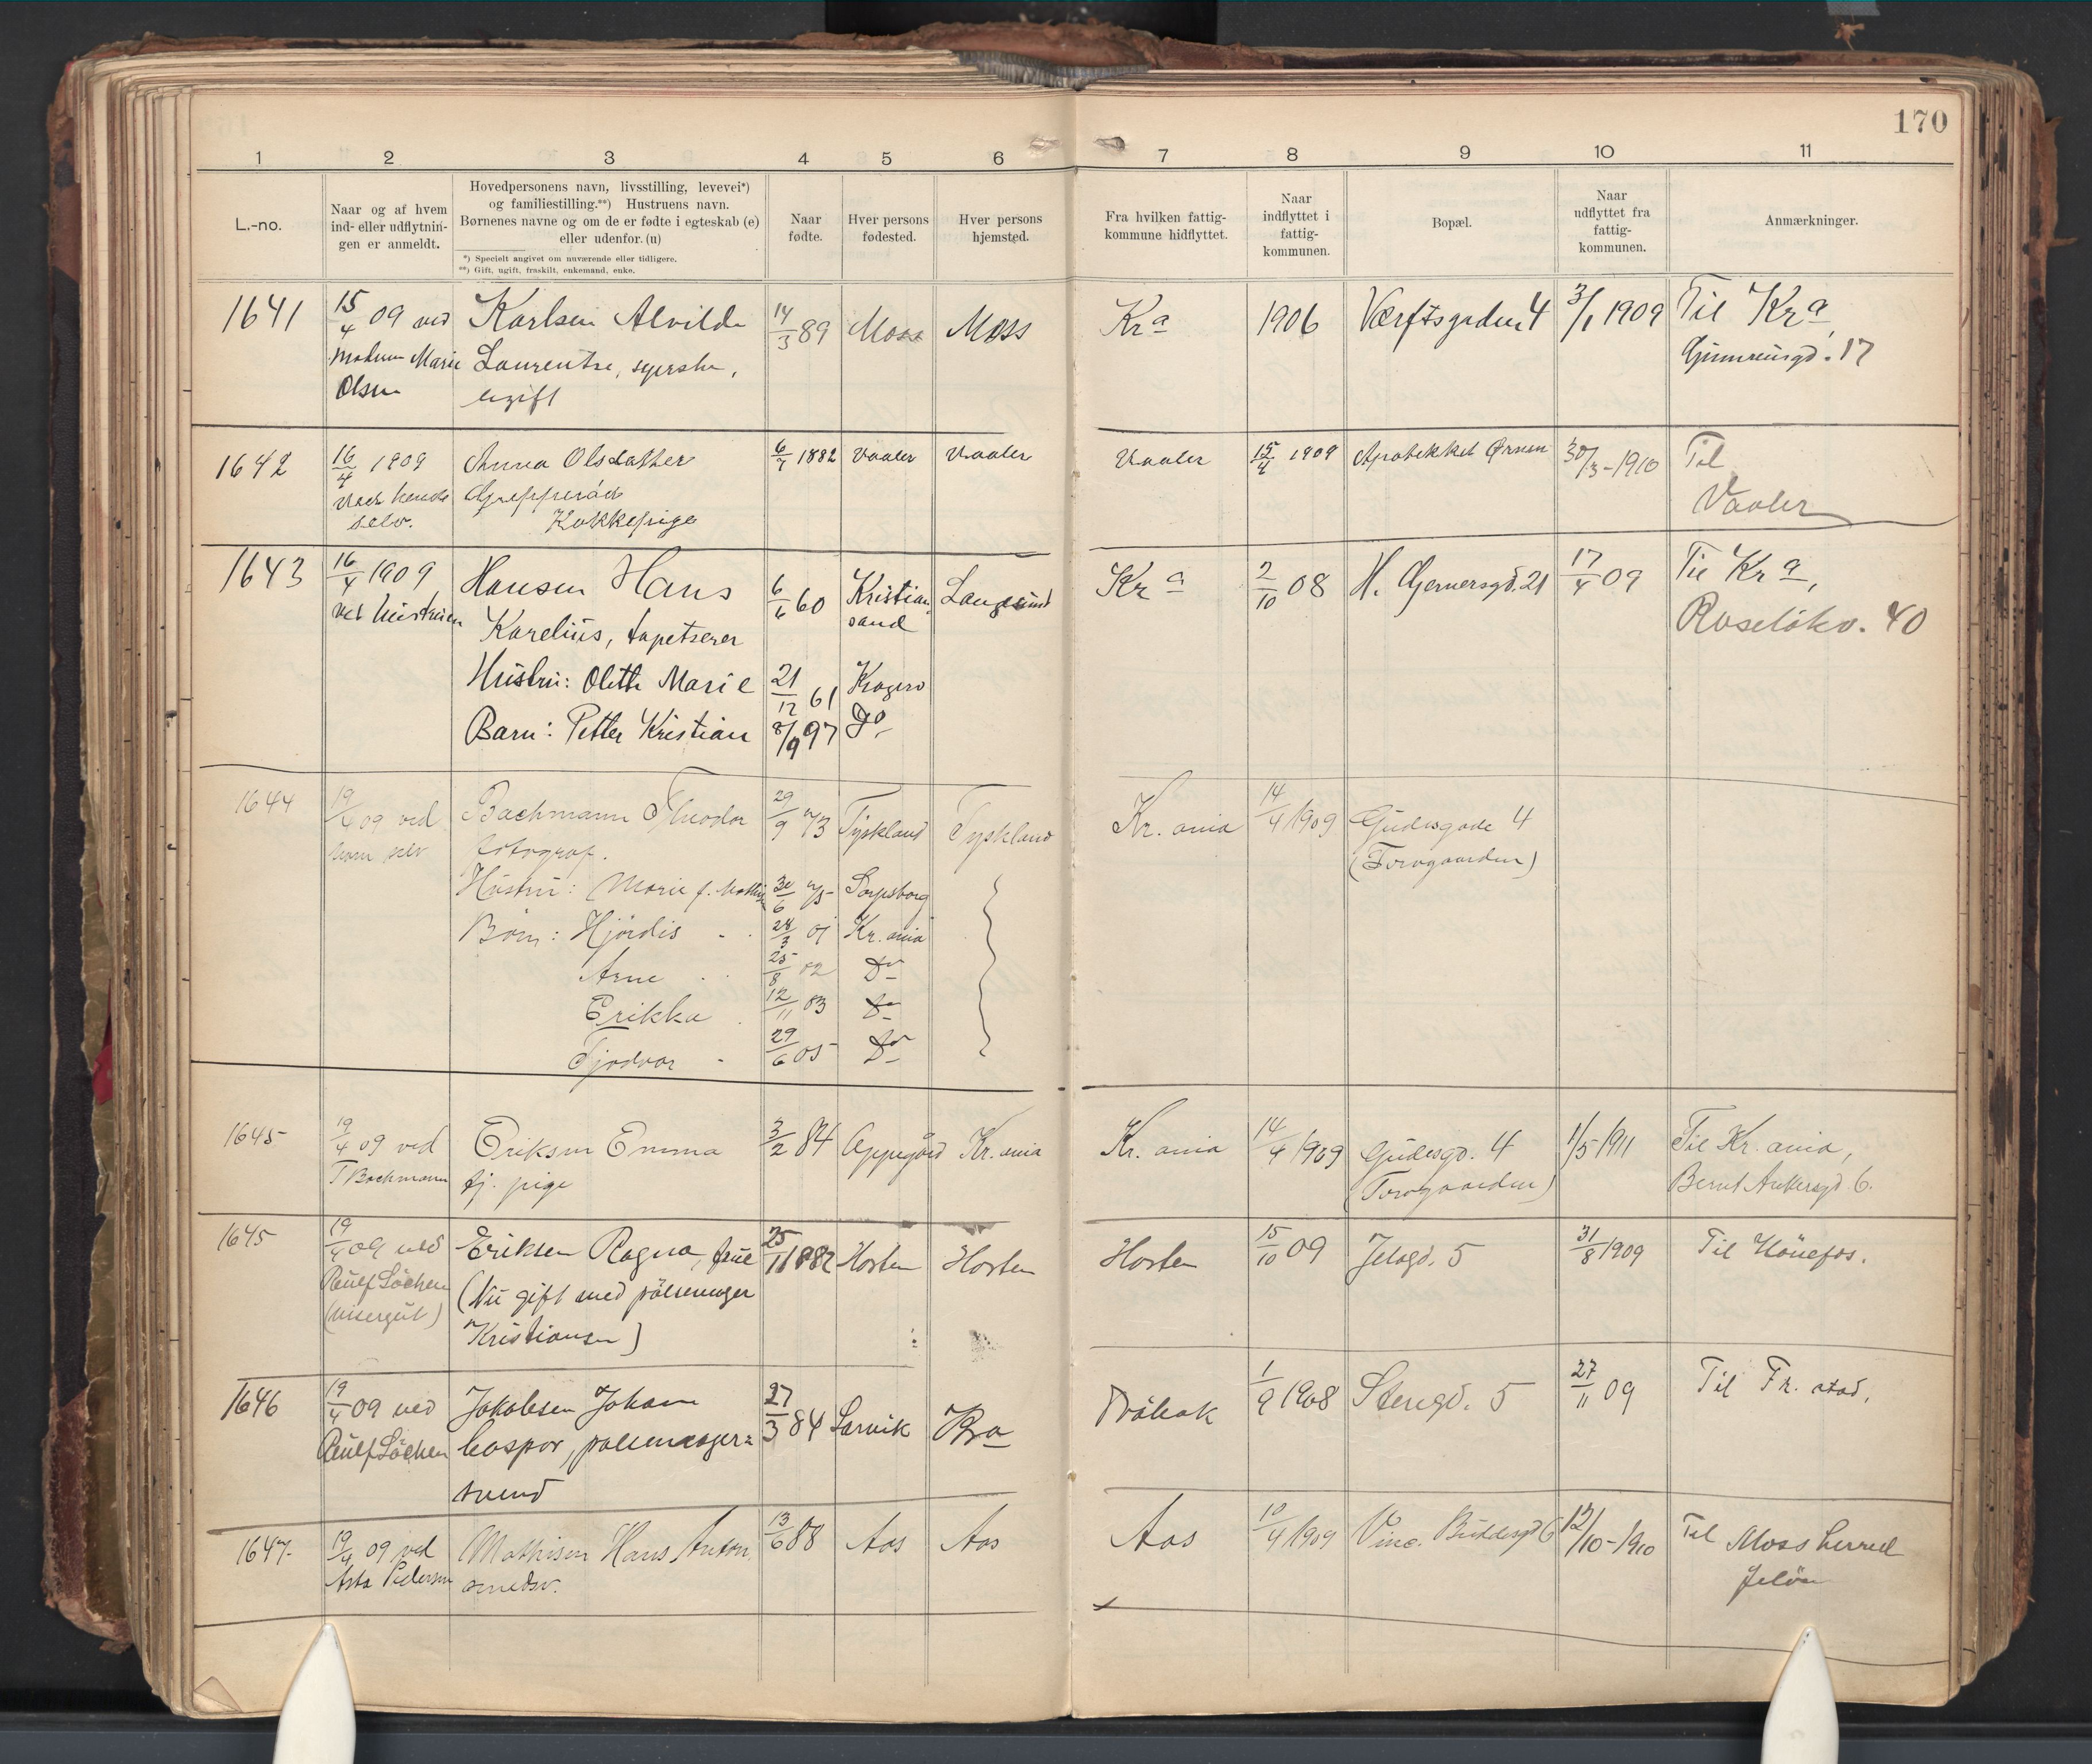 170
1 2 3 4 5 6 7 8 9 10 11
L.-no.
Naar og af hvem
ind- eller udflytnin-
gen er anmeldt.
Hovedpersonens navn, livsstilling, levevei*)
og familiestilling.**) Hustruens navn.
Børnenes navne og om de er fødte i egteskab (e)
eller udenfor. (u)
*) Specielt angivet om nuværende eller tidligere.
**) Gift, ugift, fraskilt, enkemand, enke.
Naar
fødte.
Hver persons
fødested.
Hver persons
hjemsted.
Fra hvilken fattig-
kommune hidflyttet.
Naar
indflyttet i
fattig-
kommunen.
Bopæl.
Naar
udflyttet fra
fattig-
kommunen.
Anmærkninger.
1641 15/4 09 ved Karlsen Alvilde 14/3 89 Moss Moss Kra 1906 Værftsgaden 4 3/1 1909 Til Kra,
Madam Marie Laurentse, syerske, 17
Olsen ugift
1642 16/4 1909 Anna Olsdatter 6/7 1882 Vaaler Vaaler Vaaler 15/4 1909 Apotekket Ørnen 30/3-1910 Til
ved hende Grepperød Vaaler
selv. Kokkepige
1643 16/4 1909 Hansen Hans 6/6 60 Kristian- Langesund Kra 2/10 08 H. Gernersgd. 21 17/4 09 Til Kra,
ved hustruen Karelius, tapetserer sand Ruseløkv. 40
Hustru: Olette Marie 21/12 61 Kragerø
Barn: Petter Kristian 8/9 97 Do.
1644 19/4 09 ved Bachmann Theodor 29/9 73 Tyskland Tyskland Kr.ania 14/4 1909 Gudesgade 4
ham selv fotograf. (Torvgaarden)
Hustru: Marie f. 30/6 75 Sarpsborg
Børn: Hjørdis 28/3 01 Kr.ania
Arne 25/8 02 Do
Erikka 12/11 03 Do
Tjodvar 29/6 05 Do
1645 19/4 09 ved Eriksen Emma 3/2 84 Oppegård Kr.ania Kr.ania 14/4 1909 Gudesgd. 4 1/5 1911 Til Kr.ania,
T Bachmann tj. pige (Torvgaarden) Bernt Ankersgd 6.
1645 19/4 09 ved Eriksen Ragna, frue 25/1 1882 Horten Horten Horten 15/10 09 Jeløgd. 5 31/8 1909 Til Hönefos.
Løchen (Nu gift med pölsemager
(visergut) Kristiansen)
1646 19/4 09 ved Jakobsen Johan 27/3 84 Larvik Kra Dröbak 1/9 1908 Stengd. 5 27/11 09 Til Fr.stad.
Løchen Caspar, pølsemager=
svend
1647. 19/4 09 ved Mathisen Hans Anton 13/6 88 Aas Aas Aas 10/4 1909 Vinc. Buddesgd 6 12/10-1910 Til Moss herred
Asta Pedersen smedsv. Jeløen